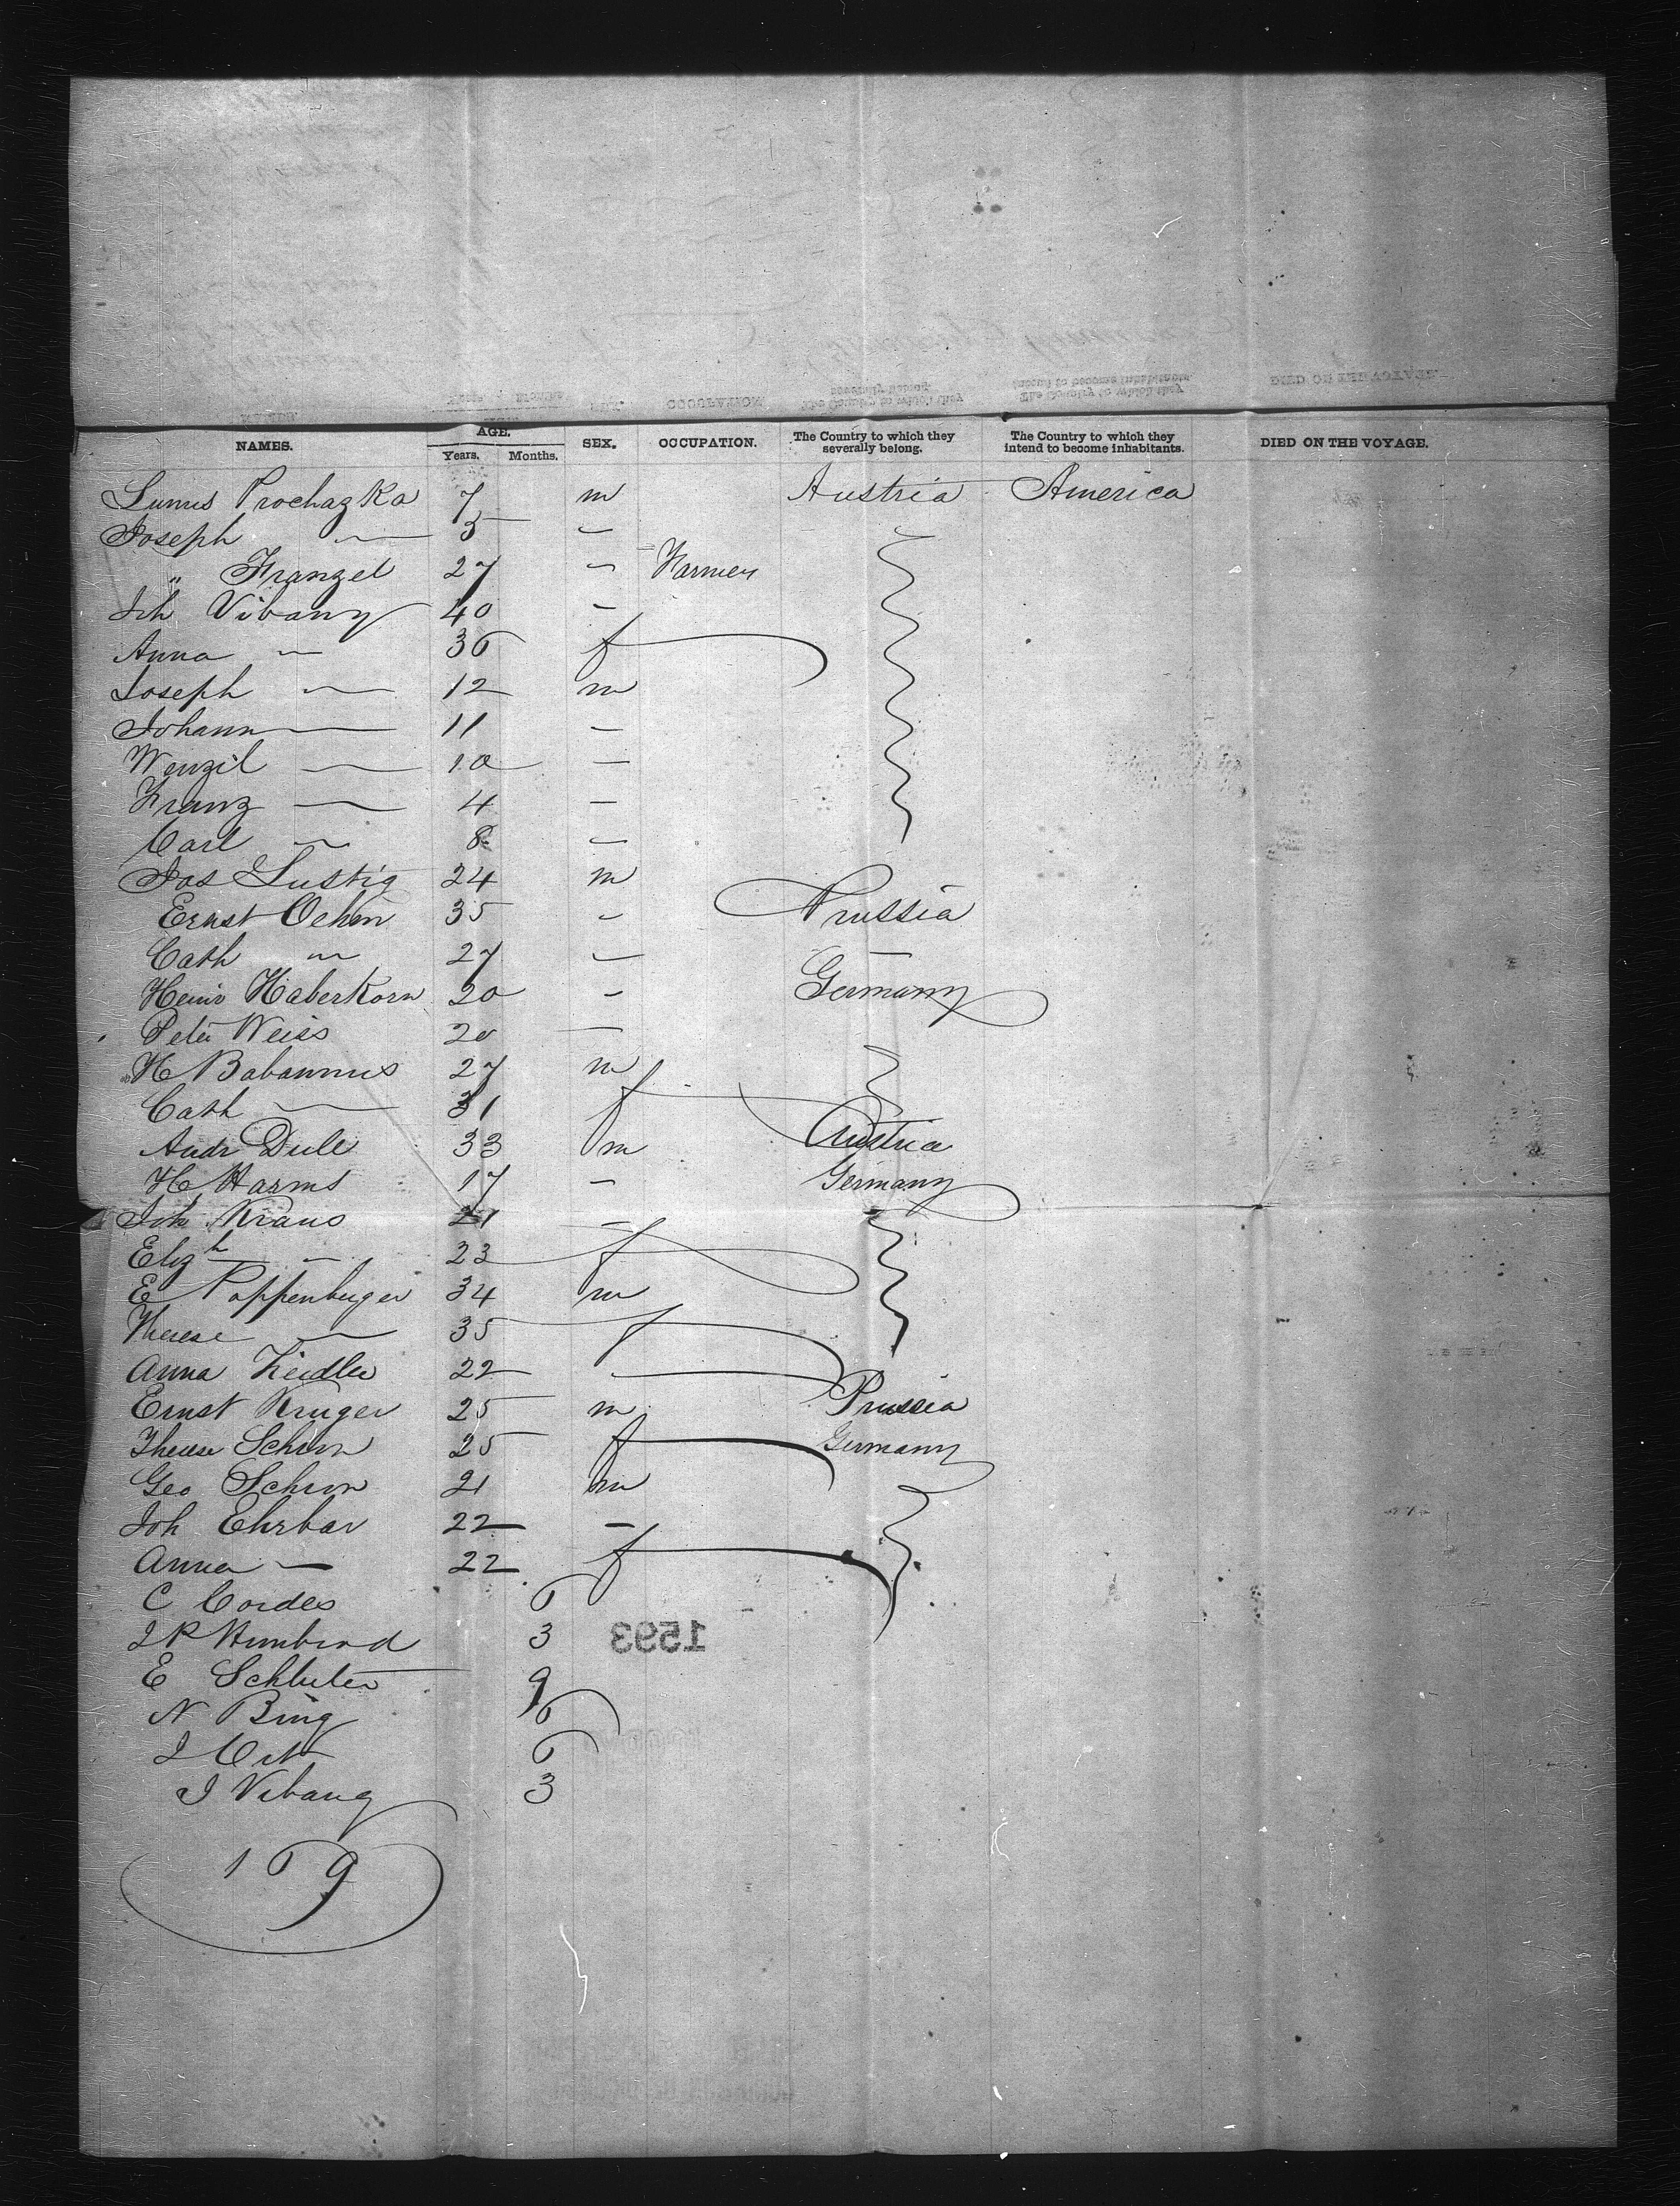 NAMES. AGE. Years. Months. SEX. OCCUPATION. The Country to which they severally belong. The Country to which they intend to become inhabitants. DIED ON THE VOYAGE.
Prochazka 7 m Austria America
Joseph — 5 —
" Franzel 27 — Farmer
Joh Vibany 40 —
Anna — 36 f
Joseph — 12 m
Johann — 11 —
Wenzil — 10 —
Franz — 4 —
Carl — 8 —
Jos Lustig 24 m
Ernst Oehm 35 — Prussia
Cath — 27 —
Henir Haberkorn 20 — Germany
Peter Weiss 20 —
H Babammus 27 m
Cath — 31 f
Andr Dule 33 m Austria
H Harms 17 — Germany
Joh Kraus 21 —
Eliz h — 23 f
E Poppenburger 34 m
Therese — 35 f
Anna Zeidler 22 —
Ernst Kruger 25 m Prussia
Therese Schron 25 f Germany
Geo Schron 21 m
Joh Ehrbar 22 —
Anna — 22 f
C Cordes 6
J P 3
1593
E Schluter 9
N Bing 6
J Ort 6
J Vibany 3
169